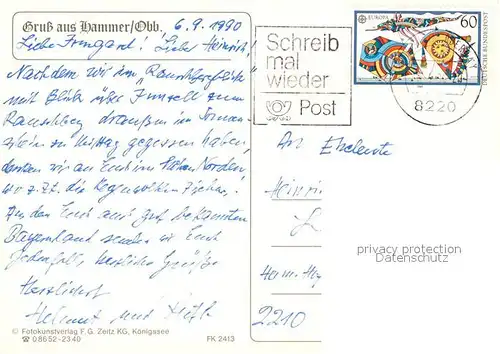 Gruß aus Hammer/Obb.
6.9.1990
Liebe Irmgard! Lieber Heinrich!
Nachdem wir im
mit Blick über Inzell zum
Rauschberg draußen im Sonnen-
schein zu Mittag gegessen haben,
denken wir an Euch im Hohen Norden,
wo z.Zt. die Regenwolken
Aus dem Euch auch gut bekannten
Bayernland senden wir Euch
jedenfalls herzliche Grüße
Herzlichst
Helmut und
© Fotokunstverlag F. G. Zeitz KG, Königssee
☎ 08652-2340
FK 2413
Schreib
mal
wieder
Post
EUROPA
60
DEUTSCHE BUNDESPOST
8220
An Eheleute
Heinri
privacy protection
Datenschutz
2210